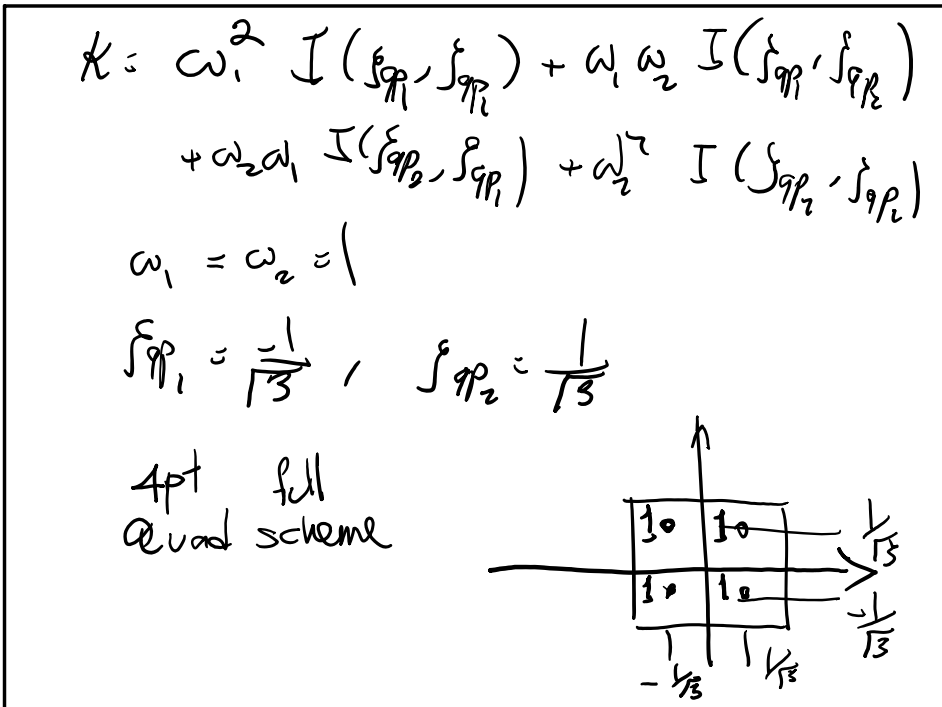 K = ω₁² I(ξ_qp₁, ξ_qp₁) + ω₁ ω₂ I(ξ_qp₁, ξ_qp₂)
+ ω₂ω₁ I(ξ_qp₂, ξ_qp₁) + ω₂² I(ξ_qp₂, ξ_qp₂)
ω₁ = ω₂ = 1
ξ_qp₁ = -1/√3, ξ_qp₂ = 1/√3
4pt full
Quad scheme
1 1 1/√3
1 1 -1/√3
-1/√3 1/√3